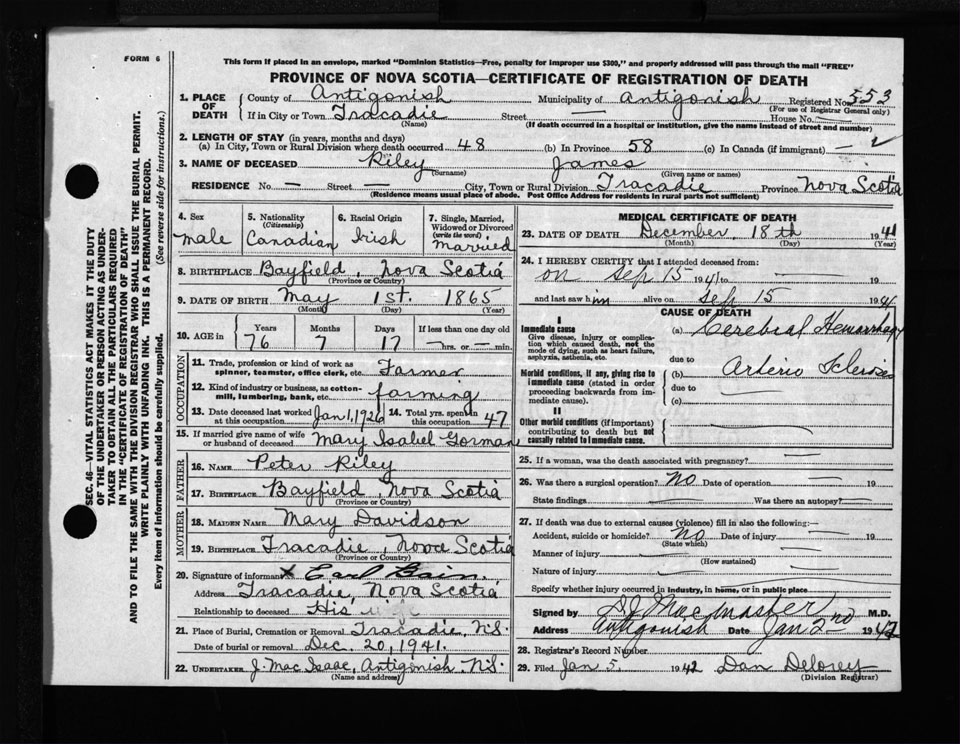 FORM 6
This form if placed in an envelope, marked "Dominion Statistics—Free, penalty for improper use $300," and properly addressed will pass through the mail "FREE"
PROVINCE OF NOVA SCOTIA—CERTIFICATE OF REGISTRATION OF DEATH
SEC. 46—VITAL STATISTICS ACT MAKES IT THE DUTY
OF THE UNDERTAKER OR PERSON ACTING AS UNDER-
TAKER TO OBTAIN ALL THE PARTICULARS REQUIRED
IN THE "CERTIFICATE OF REGISTRATION OF DEATH"
AND TO FILE THE SAME WITH THE DIVISION REGISTRAR WHO SHALL ISSUE THE BURIAL PERMIT.
WRITE PLAINLY WITH UNFADING INK. THIS IS A PERMANENT RECORD.
Every item of information should be carefully supplied. (See reverse side for instructions.)
1. PLACE OF DEATH County of Antigonish Municipality of Antigonish Registered No. 553
(For use of Registrar General only)
If in City or Town Tracadie Street — House No. —
(Name) (If death occurred in a hospital or institution, give the name instead of street and number)
2. LENGTH OF STAY (in years, months and days)
(a) In City, Town or Rural Division where death occurred 48 (b) In Province 58 (c) In Canada (if immigrant) —
3. NAME OF DECEASED Riley James
(Surname) (Given name or names)
RESIDENCE No. — Street — City, Town or Rural Division Tracadie Province Nova Scotia
(Residence means usual place of abode. Post Office Address for residents in rural parts not sufficient)
4. Sex male
5. Nationality (Citizenship) Canadian
6. Racial Origin Irish
7. Single, Married, Widowed or Divorced (write the word) Married
8. BIRTHPLACE Bayfield, Nova Scotia
(Province or Country)
9. DATE OF BIRTH May 1st. 1865
(Month) (Day) (Year)
10. AGE in Years Months Days If less than one day old
76 7 17 — hrs. or — min.
OCCUPATION
11. Trade, profession or kind of work as spinner, teamster, office clerk, etc. Farmer
12. Kind of industry or business, as cotton-mill, lumbering, bank, etc. farming
13. Date deceased last worked at this occupation Jan 1, 1926 14. Total yrs. spent in this occupation 47
15. If married give name of wife or husband of deceased Mary Isabel Gorman
FATHER
16. NAME Peter Riley
17. BIRTHPLACE Bayfield, Nova Scotia
(Province or Country)
MOTHER
18. MAIDEN NAME Mary Davidson
19. BIRTHPLACE Tracadie, Nova Scotia
(Province or Country)
20. Signature of informant X Earl
Address Tracadie, Nova Scotia
Relationship to deceased His
21. Place of Burial, Cremation or Removal Tracadie, N.S.
Date of burial or removal Dec. 20, 1941.
22. UNDERTAKER J. Mac Isaac, Antigonish N.S.
(Name and address)
MEDICAL CERTIFICATE OF DEATH
23. DATE OF DEATH December, 18th 1941
(Month) (Day) (Year)
24. I HEREBY CERTIFY that I attended deceased from:
on Sep 15 1941 to — 19
and last saw him alive on Sep 15 1941
CAUSE OF DEATH
I
Immediate cause
Give disease, injury or complication which caused death, not the mode of dying, such as heart failure, asphyxia, asthenia, etc.
(a) Cerebral Hemorrhage
due to
Morbid conditions, if any, giving rise to immediate cause (stated in order proceeding backwards from immediate cause).
(b) Arterio Sclerosis
due to
(c)
II
Other morbid conditions (if important) contributing to death but not causally related to immediate cause.
25. If a woman, was the death associated with pregnancy? —
26. Was there a surgical operation? No Date of operation — 19
State findings — Was there an autopsy? —
27. If death was due to external causes (violence) fill in also the following:
Accident, suicide or homicide? No Date of injury — 19
(State which)
Manner of injury —
(How sustained)
Nature of injury —
Specify whether injury occurred in industry, in home, or in public place
Signed by D.J. MacMaster M.D.
Address Antigonish Date Jan 2nd 1942
28. Registrar's Record Number
29. Filed Jan 5. 1942 Dan Delorey
(Division Registrar)